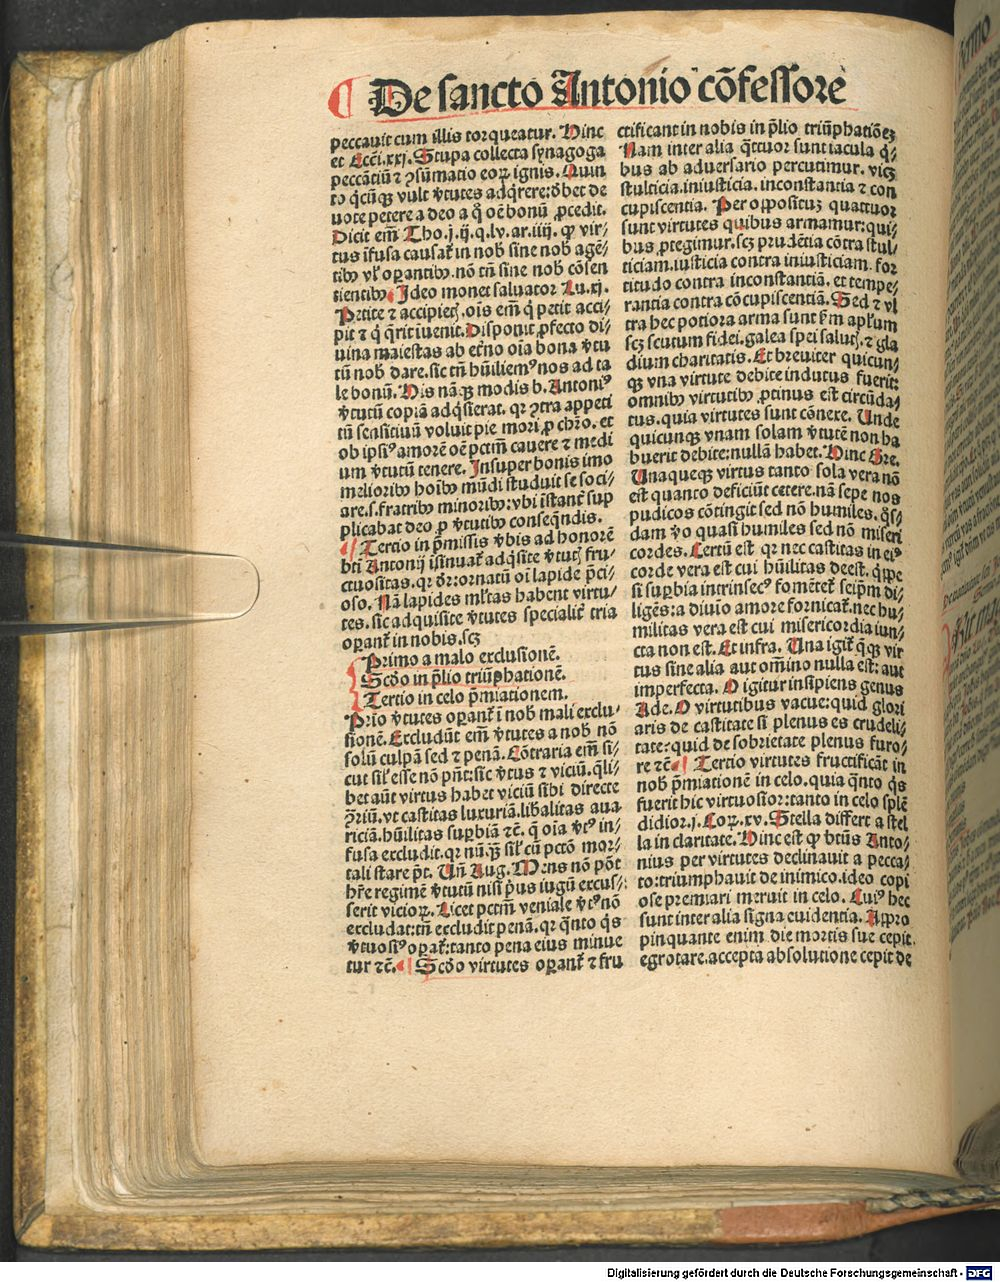 De sancto Antonio cōfessore
peccauit cum illis torqueatur. Hinc
et Ecci.xxj. Stupa collecta synagoga
peccātiū ⁊ ꝯsūmatio eoꝝ ignis. Quin
to q̇cūqꝫ vult v̓tutes adq̇rere: dꝫbet de
uote petere a deo a q̊ oē bonū ꝓcedit.
Dicit em̄ Tho.j.ij.q.lv.ar.iiij. ꝙ vir-
tus īfusa causat̄ in nob̄ sine nob̄ agē-
tibꝰ vl̓ oꝑantibꝰ. nō tn̄ sine nob̄ cōsen
tientibꝰ. Ideo monet saluator Lu.xj.
Petite ⁊ accipietꝭ. oīs em̄ q̇ petit acci-
pit ⁊ q̇ q̄rit īuenit. Disponit ꝓfecto di/
uina maiestas ab et̓no oīa bona v̓tu
tū nob̄ dare. sic tn̄ hūiliemꝰ nos ad ta
le bonū. His nāqꝫ modis b. Antoniꝰ
v̓tutū copiā adq̇sierat. qꝛ ꝯtra appeti
tū sensitiuū voluit pie mori ꝓ chr̄o. et
ob ipsiꝰ amorē oē pctm̄ cauere ⁊ medi
um v̓tutū tenere. Insuper bonis imo
melioribꝰ hoībꝰ mūdi studuit se soci/
are. s. fratribꝰ minoribꝰ: vbi īstant̓ sup
plicabat deo ꝓ v̓tutibꝰ conseq̄ndis.
Tertio in p̄missis v̓bis ad honorē
bt̄i Antonij īsinuat̄ adq̇site v̓tutꝭ fru/
ctuositas. qꝛ dꝛ: ornatū oī lapide p̄ci-
oso. Nā lapides ml̓tas habent virtu-
tes. sic adquisite v̓tutes specialit̓ tria
oꝑant̄ in nobis. scꝫ
Primo a malo exclusionē.
Scd̓o in p̄lio triūphationē.
Tertio in celo p̄miationem.
Prio v̓tutes oꝑant̄ ī nob̄ mali exclu/
sionē. Excludūt em̄ v̓tutes a nob̄ nō
solū culpā sed ⁊ penā. Cōtraria em̄ si-
cut sil̓ esse nō pn̄t: sic v̓tus ⁊ viciū. q̄li-
bet aūt virtus habet viciū sibi directe
ꝯ̄riū. vt castitas luxuriā. lib̓alitas aua
riciā. hūilitas suꝑbiā ⁊c̄. q̄ oīa v̓tꝰ in/
fusa excludit. qꝛ nūqꝫ sil̓ cū pctō mor-
tali stare pt̄. Vn̄ Aug. Mens nō pōt
hr̄e regimē v̓tutū nisi pꝰus iugū excus/
serit vicioꝝ. Licet pctm̄ veniale v̓tꝰ nō
excludat: tn̄ excludit penā. qꝛ q̄nto q̇s
v̓tuosiꝰ oꝑat̄: tanto pena eius minue
tur ⁊c̄. Scd̓o virtutes oꝑant̄ ⁊ fru
ctificant in nobis in p̄lio triūphatiōeꝫ
Nam inter alia q̄ttuor sunt iacula q̇/
bus ab aduersario percutimur. vicꝫ
stulticia. iniusticia. inconstantia ⁊ con
cupiscentia. Per oppositū quattuor
sunt virtutes quibus armamur: qui/
bus ꝓtegimur. scꝫ prudētia cōtra stul/
ticiam. iusticia contra iniusticiam. for
titudo contra inconstantiā. et tempe/
rantia contra cōcupiscentiā. Sed ⁊ vl
tra hec potiora arma sunt ẜm apl̓um
scꝫ scutum fidei. galea spei salutꝭ. ⁊ gla
dium charitatis. Et breuiter quicun/
qꝫ vna virtute debite indutus fuerit:
omnibꝰ virtutibꝰ ꝓtinus est circūda/
tus. quia virtutes sunt cōnexe. Unde
quicunque vnam solam v̓tutē non ha
buerit debite: nullā habet. Hinc Gre.
Unaqueqꝫ virtus tanto sola vera nō
est quanto deficiūt cetere. nā sepe nos
pudicos cōtingit sed nō humiles. q̇s/
dam v̓o quasi humiles sed nō miseri
cordes. Certū est qꝛ nec castitas in eiꝰ
corde vera est cui hūilitas deest. q̇ppe
si suꝑbia intrinsecꝰ fomētet̄ seip̄m di/
ligēs: a diuīo amore fornicat̄. nec hu-
militas vera est cui misericordia iun/
cta non est. Et infra. Una igit̄ q̄qꝫ vir
tus sine alia aut om̄ino nulla est: aut
imperfecta. O igitur insipiens genus
Ade. O virtutibus vacue: quid glori
aris de castitate si plenus es crudeli/
tate: quid de sobrietate plenus furo/
re ⁊c̄. Tertio virtutes fructificāt in
nob̄ p̄miationē in celo. quia q̄nto q̇s
fuerit hic virtuosior: tanto in celo splē
didior. j. Coꝝ. xv. Stella differt a stel
la in claritate. Hinc est ꝙ bt̄us Anto/
nius per virtutes declinauit a pecca/
to: triumphauit de inimico. ideo copi
ose premiari meruit in celo. Cuiꝰ hec
sunt inter alia signa euidentia. Appro
pinquante enim die mortis sue cepit
egrotare. accepta absolutione cepit de
Digitalisierung gefördert durch die Deutsche Forschungsgemeinschaft - DFG